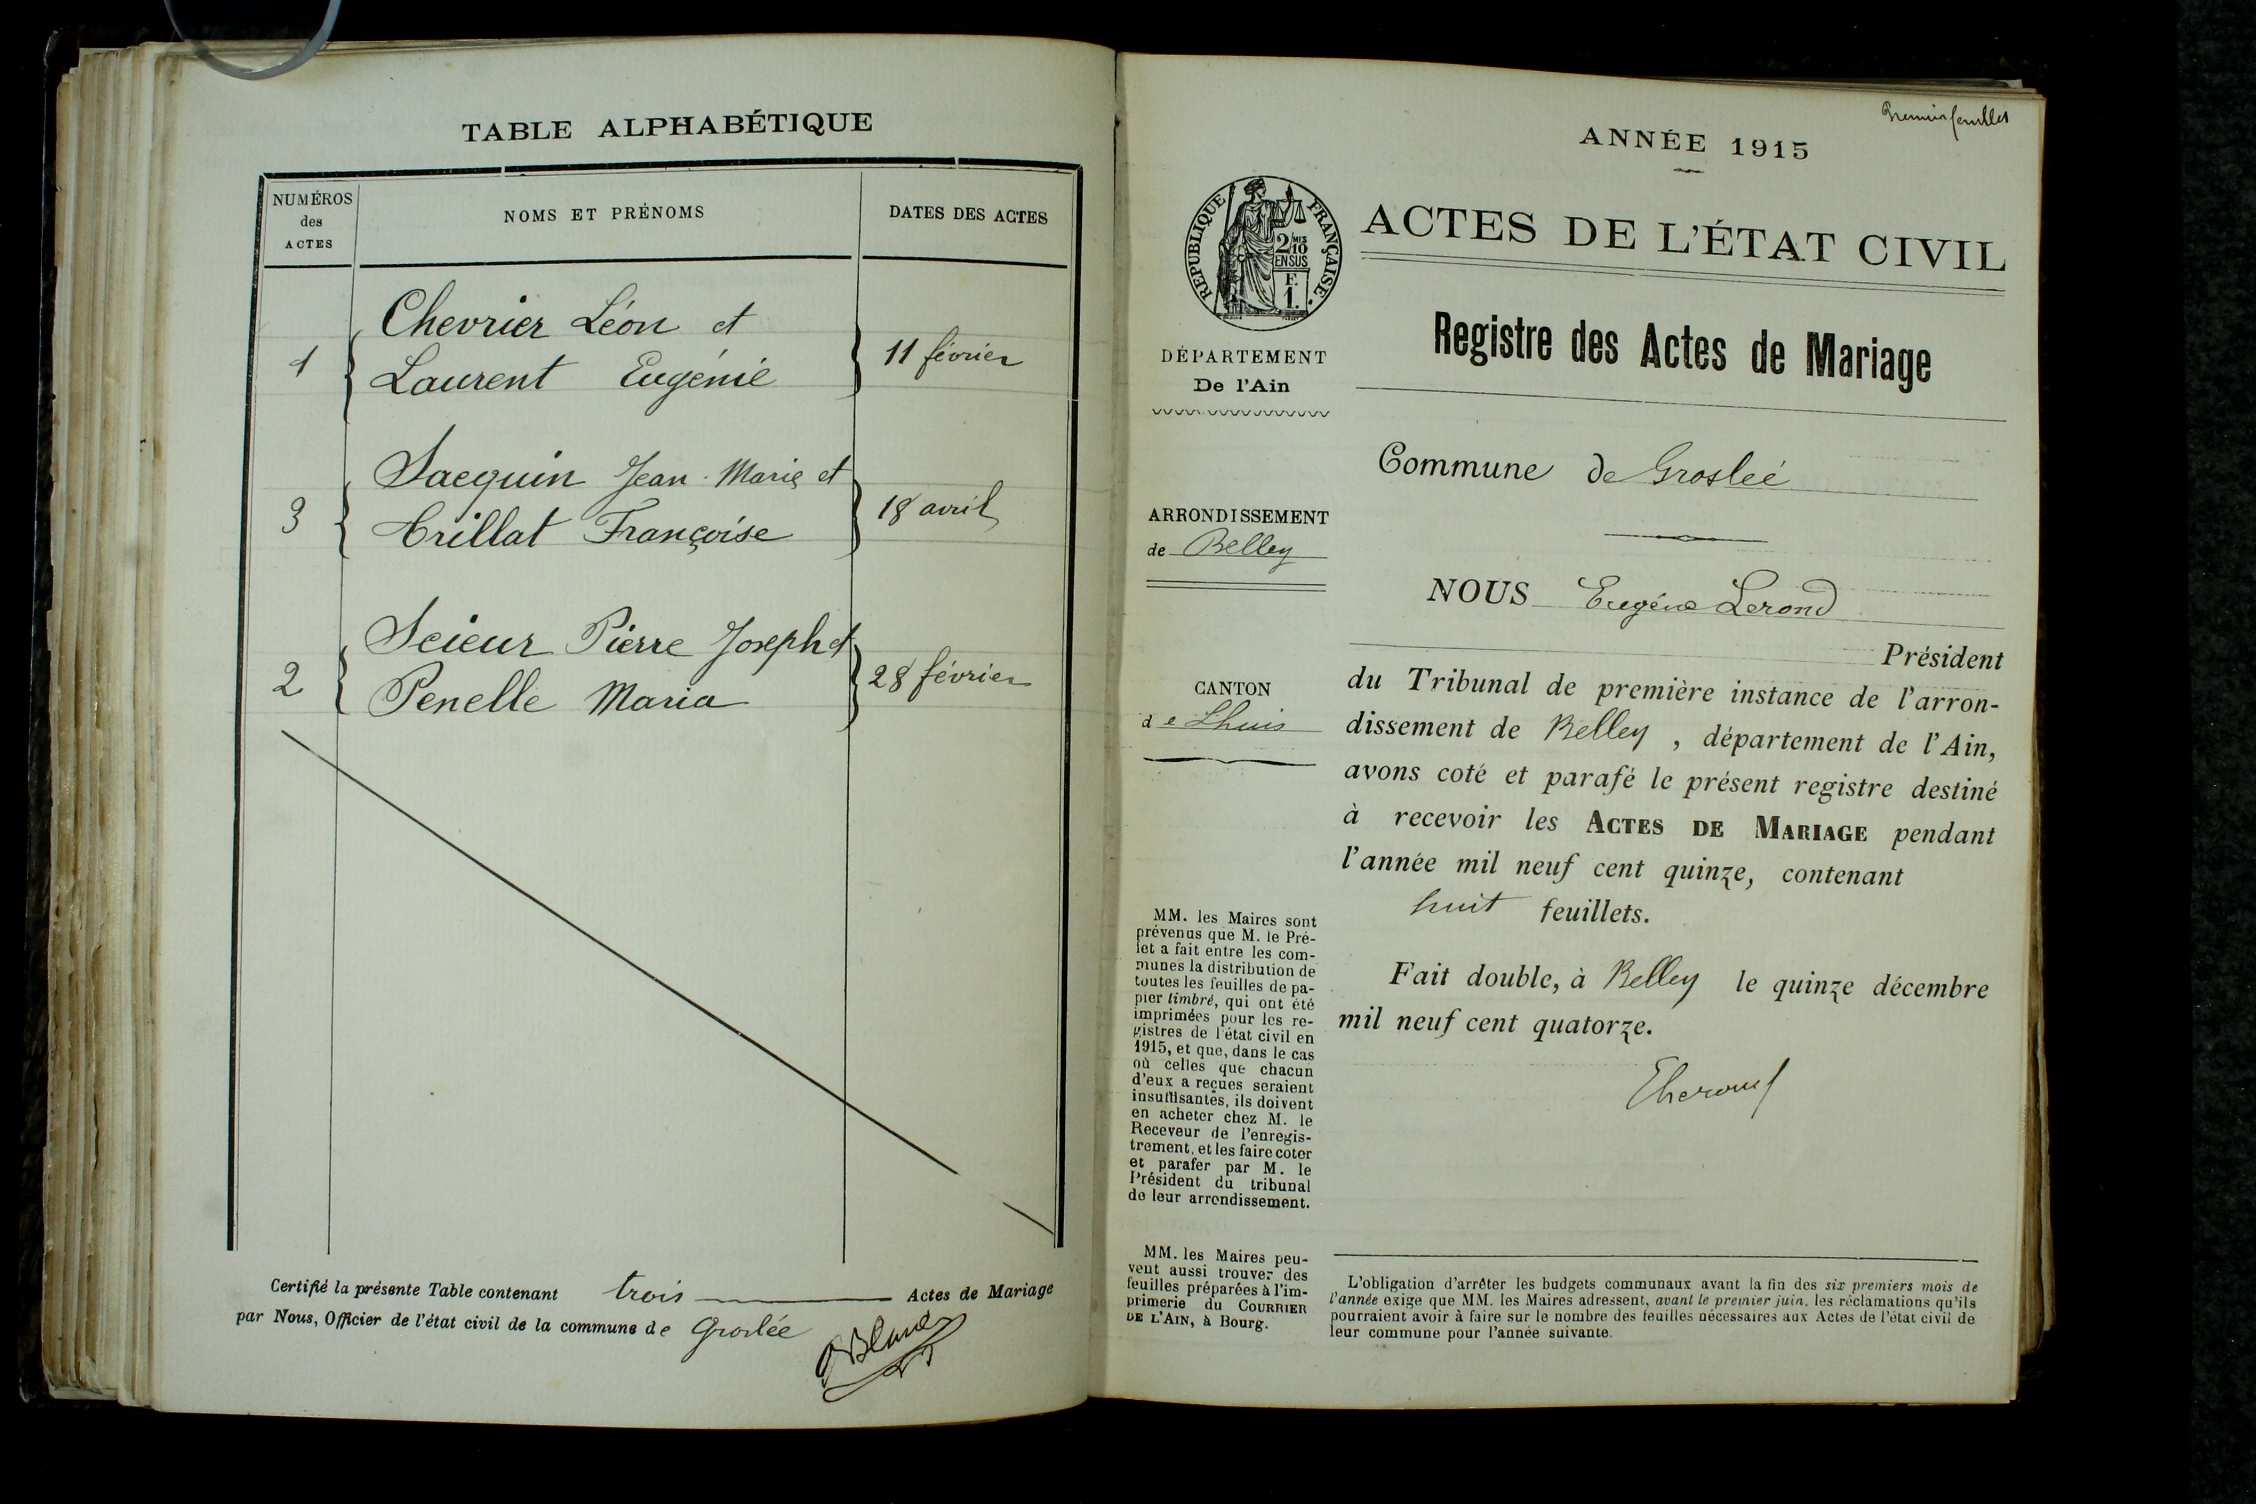 TABLE ALPHABÉTIQUE
NUMÉROS
des
ACTES
NOMS ET PRÉNOMS
DATES DES ACTES
Chevrier Léon et
1
11 février
Laurent Eugénie
Sacquin Jean-Marie et
3
18 avril
Trillat Françoise
Scieur Pierre Joseph et
2
28 février
Penelle Maria
Certifié la présente Table contenant trois Actes de Mariage
par Nous, Officier de l'état civil de la commune de Groslée
Premier feuillet
ANNÉE 1915
RÉPUBLIQUE FRANÇAISE.
2/10
EN SUS
F.
1.
ACTES DE L'ÉTAT CIVIL
Registre des Actes de Mariage
DÉPARTEMENT
De l'Ain
Commune de Groslée
ARRONDISSEMENT
de Belley
NOUS Eugène Lerond
Président
CANTON
de Lhuis
du Tribunal de première instance de l'arron-
dissement de Belley, département de l'Ain,
avons coté et parafé le présent registre destiné
à recevoir les ACTES DE MARIAGE pendant
l'année mil neuf cent quinze, contenant
huit feuillets.
Fait double, à Belley le quinze décembre
mil neuf cent quatorze.
MM. les Maires sont
prévenus que M. le Pré-
fet a fait entre les com-
munes la distribution de
toutes les feuilles de pa-
pier timbré, qui ont été
imprimées pour les re-
gistres de l'état civil en
1915, et que, dans le cas
où celles que chacun
d'eux a reçues seraient
insuffisantes, ils doivent
en acheter chez M. le
Receveur de l'enregis-
trement, et les faire coter
et parafer par M. le
Président du tribunal
de leur arrondissement.
MM. les Maires peu-
vent aussi trouver des
feuilles préparées à l'im-
primerie du COURRIER
DE L'AIN, à Bourg.
L'obligation d'arrêter les budgets communaux avant la fin des six premiers mois de
l'année exige que MM. les Maires adressent, avant le premier juin, les réclamations qu'ils
pourraient avoir à faire sur le nombre des feuilles nécessaires aux Actes de l'état civil de
leur commune pour l'année suivante.